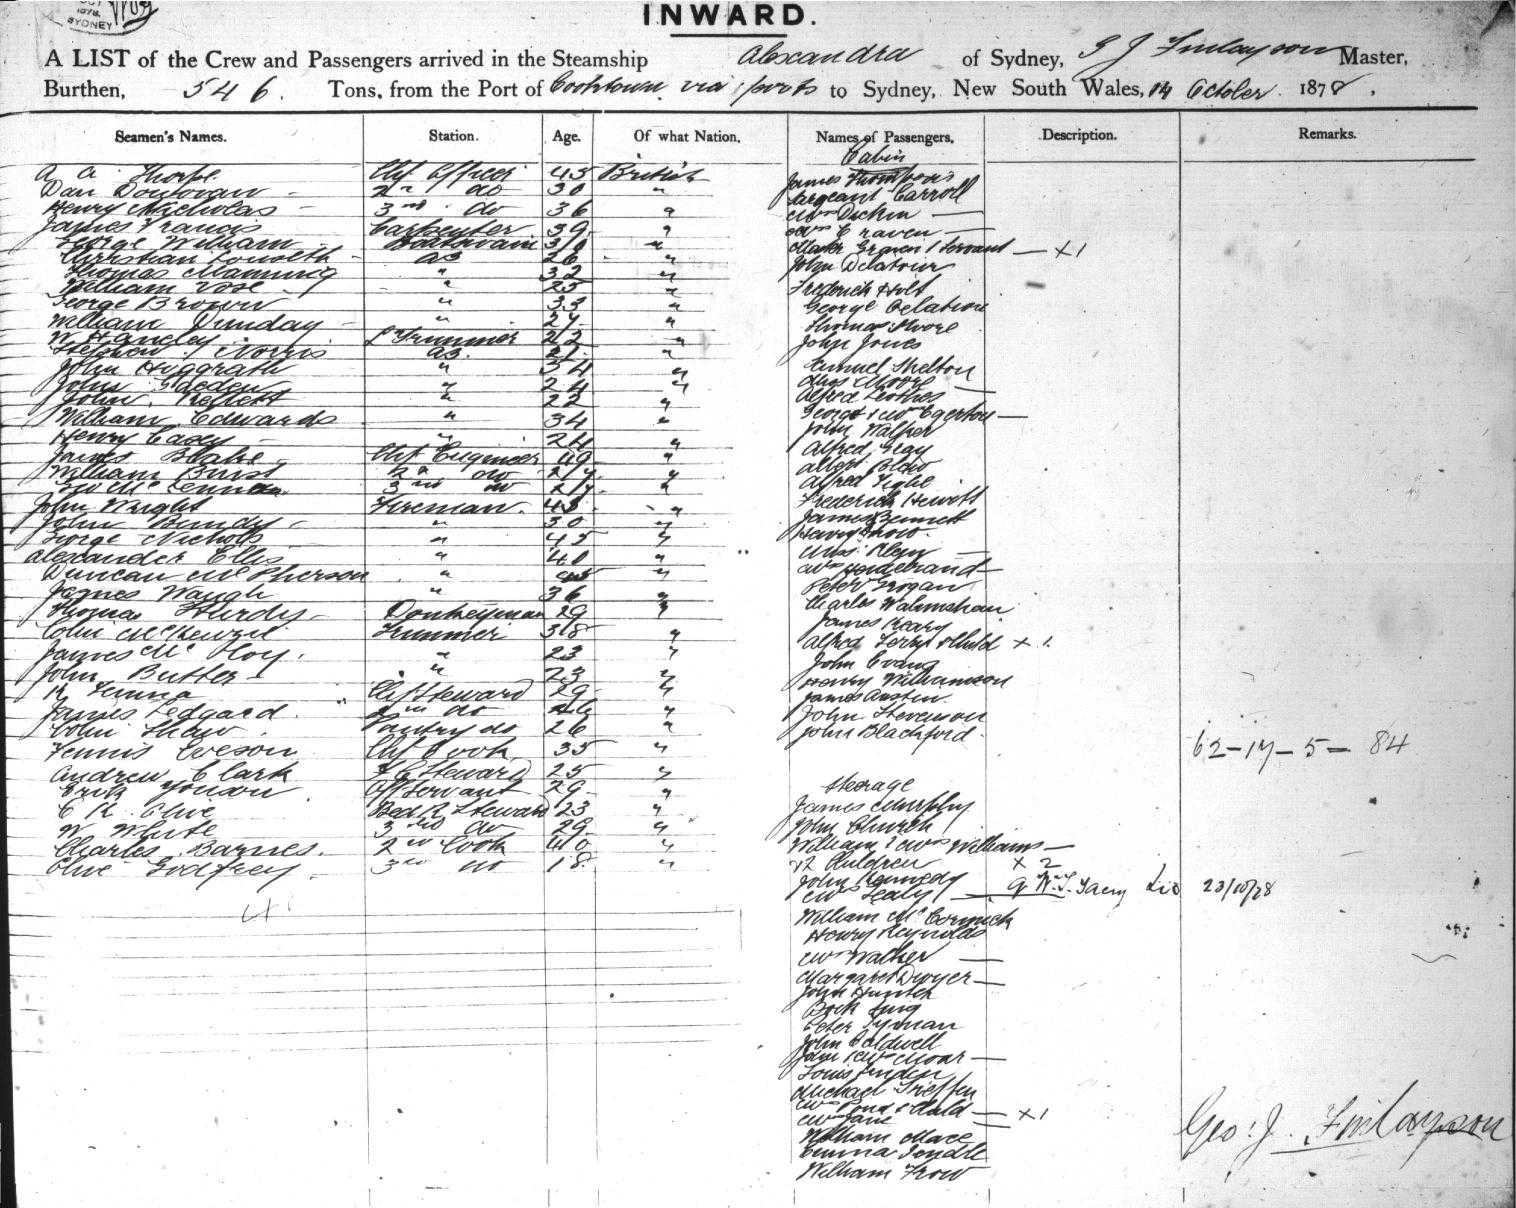 1878
SYDNEY
INWARD.
A LIST of the Crew and Passengers arrived in the Steamship Alexandra of Sydney, G J Finlayson Master,
Burthen, 546. Tons, from the Port of Cooktown via ports to Sydney, New South Wales, 14 October 1878.
Seamen's Names. Station. Age. Of what Nation. Names of Passengers, Description. Remarks.
Cabin
A A Thorpe Chf Officer 45 British
Dan Donovan 2nd do 30 "
Henry Nicholas 3rd do 36 "
James Francis Carpenter 39 "
George William Boatswain 30 "
Christian AS 26 "
Thomas Manning " 32 "
William Vose " 25 "
George Brown " 33 "
William Dunday " 27 "
W Hanley L Trimmer 22 "
Stephen Norris AS "
John Hoggrath " 34 "
John " 24 "
John Kellett " 22 "
William Edwards " 34 "
Henry Casey " 24 "
James Blake Chf Engineer 49 "
William Burst 2nd do 27 "
3rd do 27 "
John Wright Fireman 43 "
John Bundy " 30 "
George Nicholls " 45 "
Alexander Ellis " 40 "
Duncan McPherson " "
James Waugh " 36 "
Thomas Sturdy Donkeyman 29 "
Colin McKenzie Trimmer 38 "
James McHoy " 23 "
John Butler " 23 "
R Timma Chf Steward 29 "
James Ledgard 2nd do 26 "
Colin Shaw Pantry do 26 "
Tennis Eveson Chf Cook 35 "
Andrew Clark F C Steward 25 "
Erik Yonson Off Servant 29 "
C R Clive Bed R Steward 23 "
W White 3rd do 29 "
Charles Barnes 2nd Cook 40 "
Clive Godfrey 3rd do 18 "
41
James
Sargeant Carroll
Mrs Dickin
Mrs Craven
Master Craven 1 Servant x1
John Delatour
Frederick Holt
George Delation
Thomas Moore
John Jones
Samuel Shelton
Mrs Moore
Alfred Lothes
George & Mrs Egerton
John Walker
Alfred Gray
Albert
Alfred
Frederick Hewitt
James Bennett
Henry Snow
Miss Klein
Mrs Hildebrand
Peter Grogan
Charles Walmshan
James Keary
Alfred Terry & Child x 1
John Evans
Henry Williamson
James Austin
John Stevenson
John Blachford
62-17-5- 84
Steerage
James Murphy
John Church
William & Mrs Williams
& 2 Children x 2
John Kennedy
Mrs Lealy 23/10/78
William McCormick
Henry Reynolds
Mrs Walker
Margaret Dwyer
John Hunter
Bock Jung
Peter Tynan
John Caldwell
John & Mrs Moar
Louis
Michael Steffen
Mrs Pond & Child x1
Mrs Jane
William Mace
Emma
William Frow
Geo: J. Finlayson